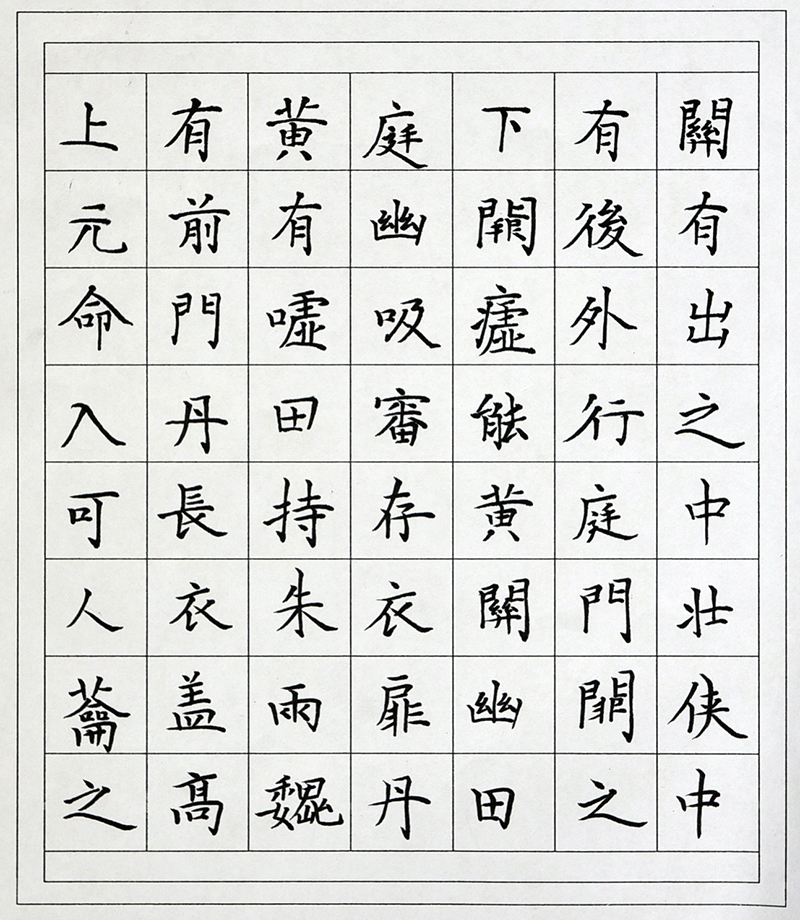 上有黄庭下有關
元前有幽闕後有
命門嘘吸廬外出
入丹田審能行之
可長持存黄庭中
人衣朱衣關門壯
蘥盖雨扉幽闕侠
之高魏丹田之中